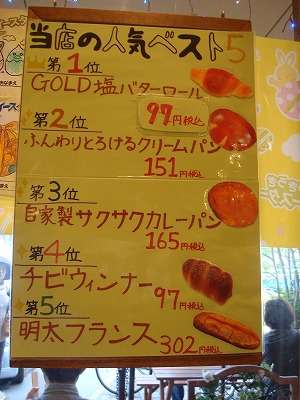 当店の人気ベスト5
第1位
GOLD塩バターロール
97円税込
第2位
ふんわりとろけるクリームパン
151円税込
第3位
自家製サクサクカレーパン
165円税込
第4位
チビウィンナー
97円税込
第5位
明太フランス
302円税込